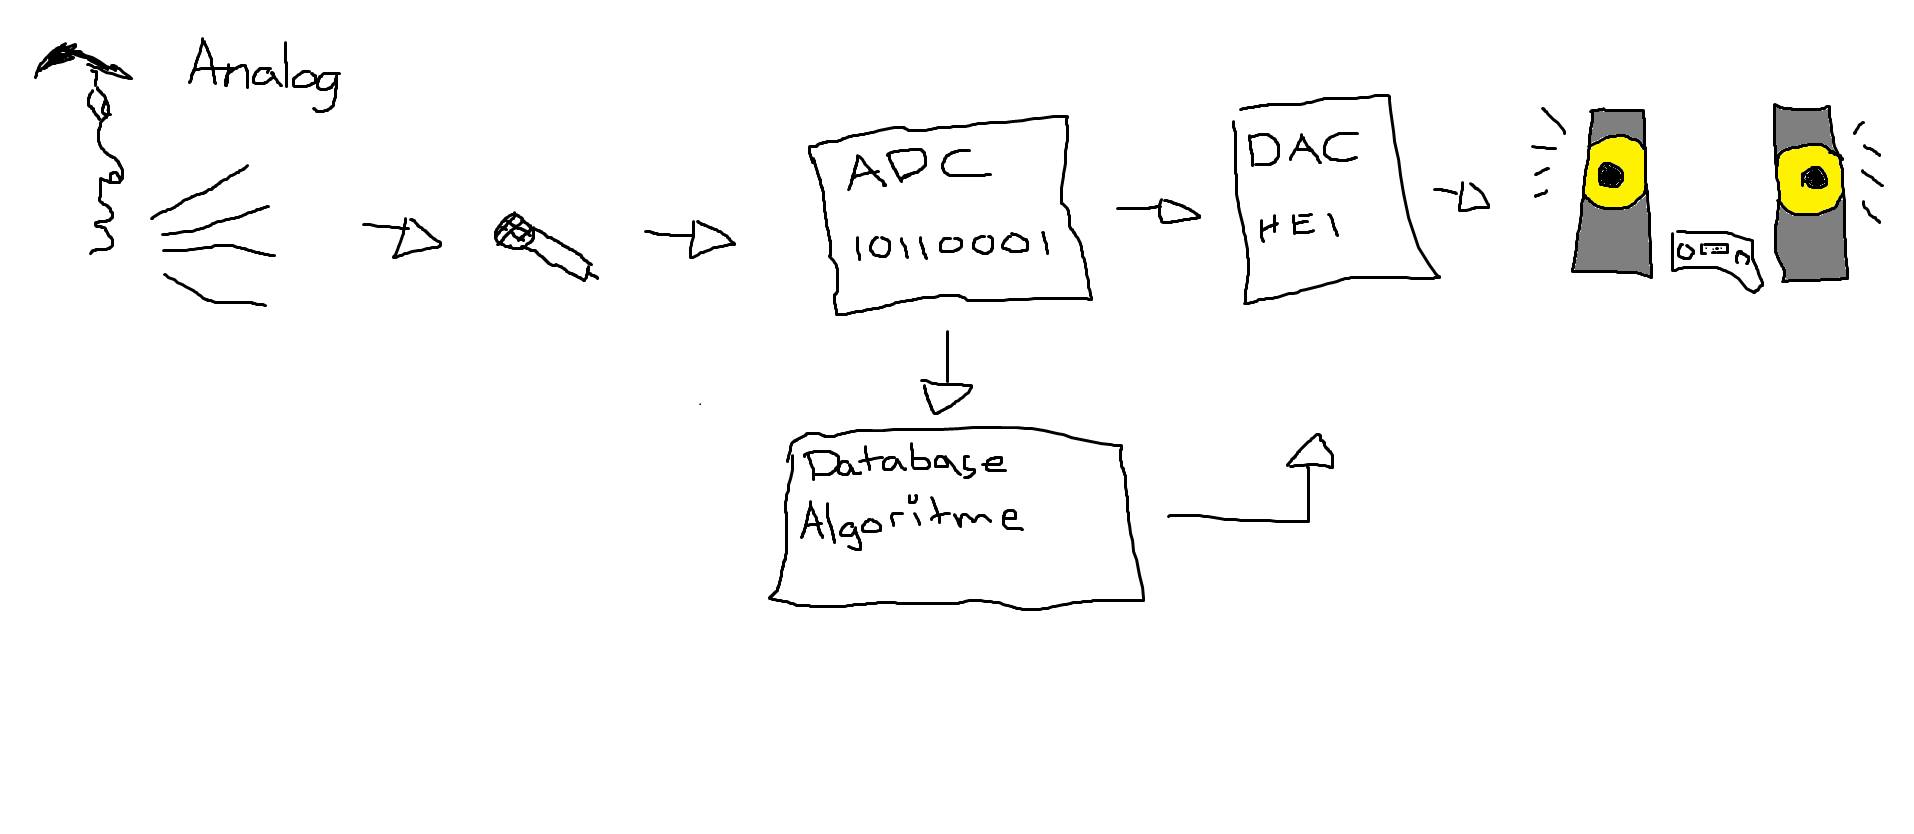 Analog
ADC
10110001
DAC
HEI
Database
Algoritme